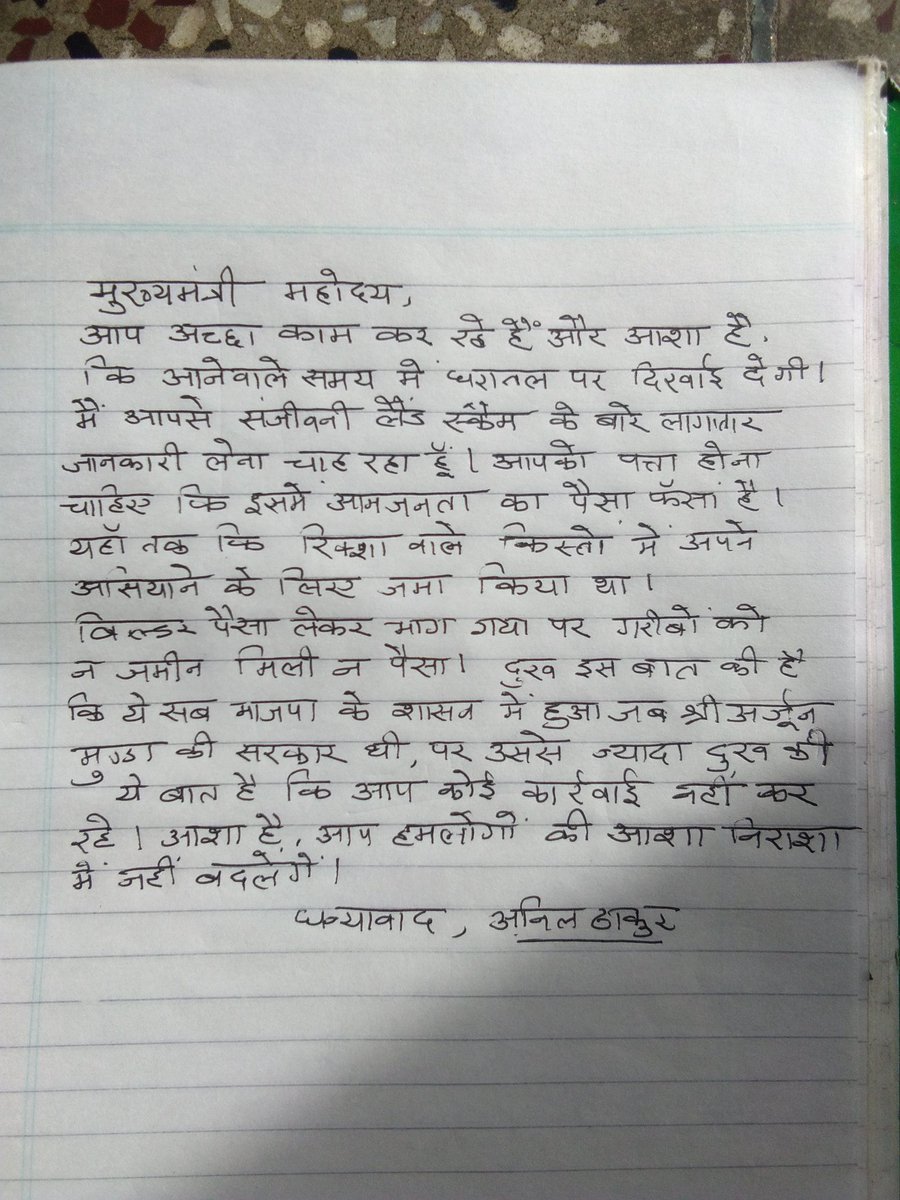 मुख्यमंत्री महोदय,
आप अच्छा काम कर रहे हैं और आशा है,
कि आनेवाले समय में धरातल पर दिखाई देगी।
मैं आपसे संजीवनी लैंड स्कैम के बारे लागातार
जानकारी लेना चाह रहा हूँ। आपको पत्ता होना
चाहिए कि इसमें आमजनता का पैसा फँसां है।
यहाँ तक कि रिक्शा वाले किस्तों में अपने
आसियाने के लिए जमा किया था।
बिल्डर पैसा लेकर भाग गया पर गरीबों को
न जमीन मिली न पैसा। दुख इस बात की है
कि ये सब भाजपा के शासन में हुआ जब श्री अर्जून
मुण्डा की सरकार थी, पर उससे ज्यादा दुख की
ये बात है कि आप कोई कार्रवाई नहीं कर
रहे। आशा है, आप हमलोगों की आशा निराशा
में नहीं बदलेगें।
धन्यावाद, अनिल ठाकुर